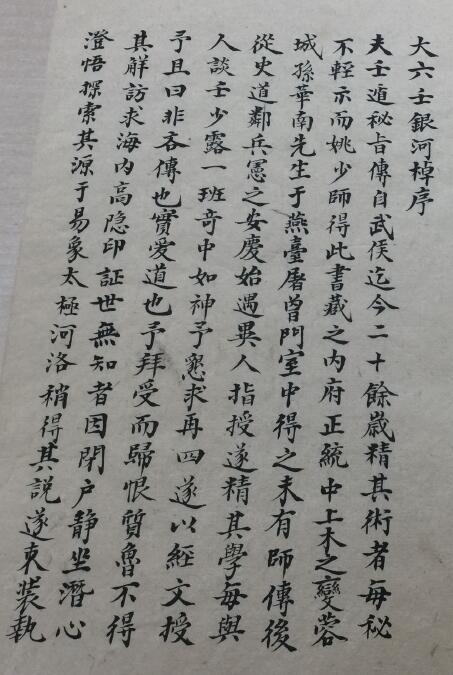 大六壬銀河棹序
夫壬遁秘旨傳自武侯迄今二十餘歳精其術者每秘
不輕示而姚少師得此書藏之内府正統中上木之變蓉
城孫華南先生于燕臺屠曾門室中得之未有師傳後
從史道鄰兵憲之安慶始遇異人指授遂精其學每與
人談壬少露一班奇中如神予懇求再四遂以經文授
予且曰非吝傳也實爱道也予拜受而歸恨質魯不得
其解訪求海内高隐印証世無知者因閉户静坐潛心
澄悟探索其源于易象太極河洛稍得其説遂束裝執